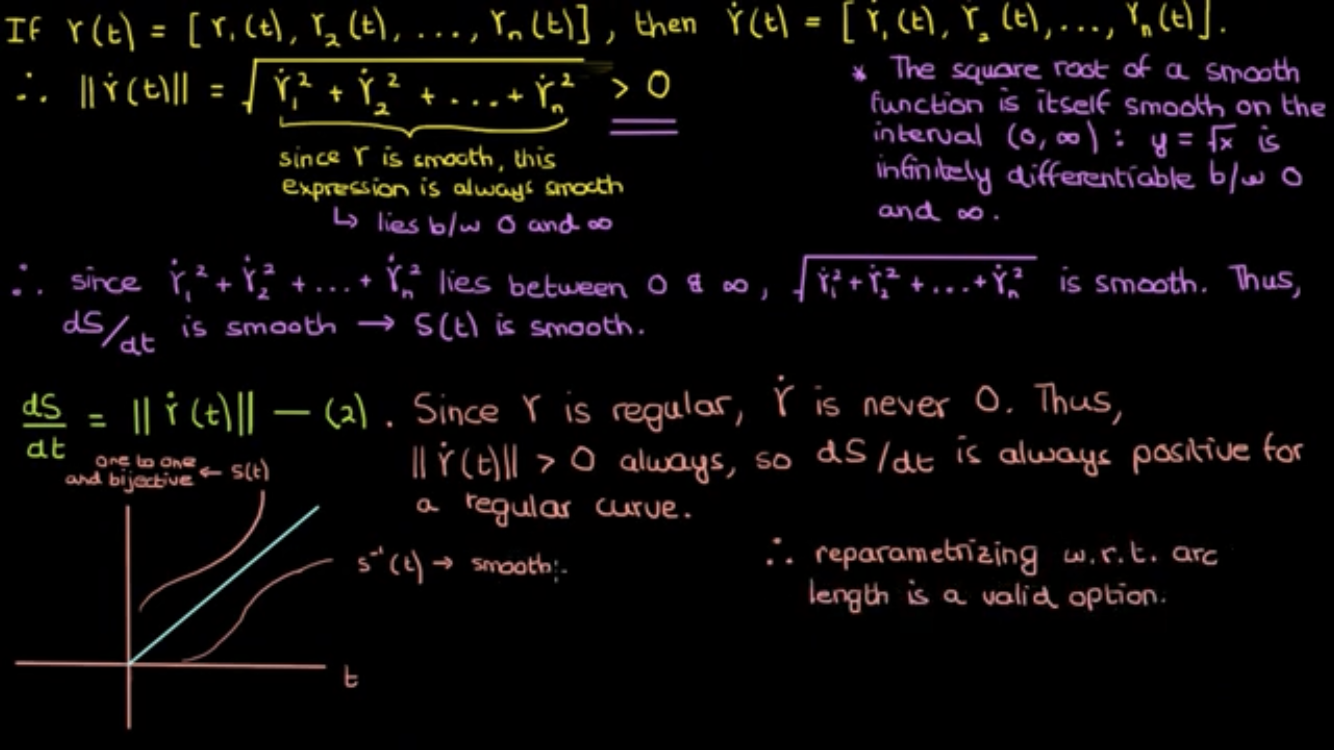 If r(t) = [r₁(t), r₂(t), ..., rₙ(t)], then ṙ(t) = [ṙ₁(t), ṙ₂(t), ..., ṙₙ(t)].
∴ ||ṙ(t)|| = √(ṙ₁² + ṙ₂² + ... + ṙₙ²) > 0
since r is smooth, this
expression is always smooth
↳ lies b/w 0 and ∞
* The square root of a smooth
function is itself smooth on the
interval (0, ∞) : y = √x is
infinitely differentiable b/w 0
and ∞.
∴ since ṙ₁² + ṙ₂² + ... + ṙₙ² lies between 0 & ∞, √(ṙ₁² + ṙ₂² + ... + ṙₙ²) is smooth. Thus,
dS/dt is smooth → S(t) is smooth.
dS/dt = ||ṙ(t)|| — (2). Since r is regular, ṙ is never 0. Thus,
||ṙ(t)|| > 0 always, so dS/dt is always positive for
a regular curve.
one to one
and bijective ← S(t)
s⁻¹(t) → smooth:.
t
∴ reparametrizing w.r.t. arc
length is a valid option.